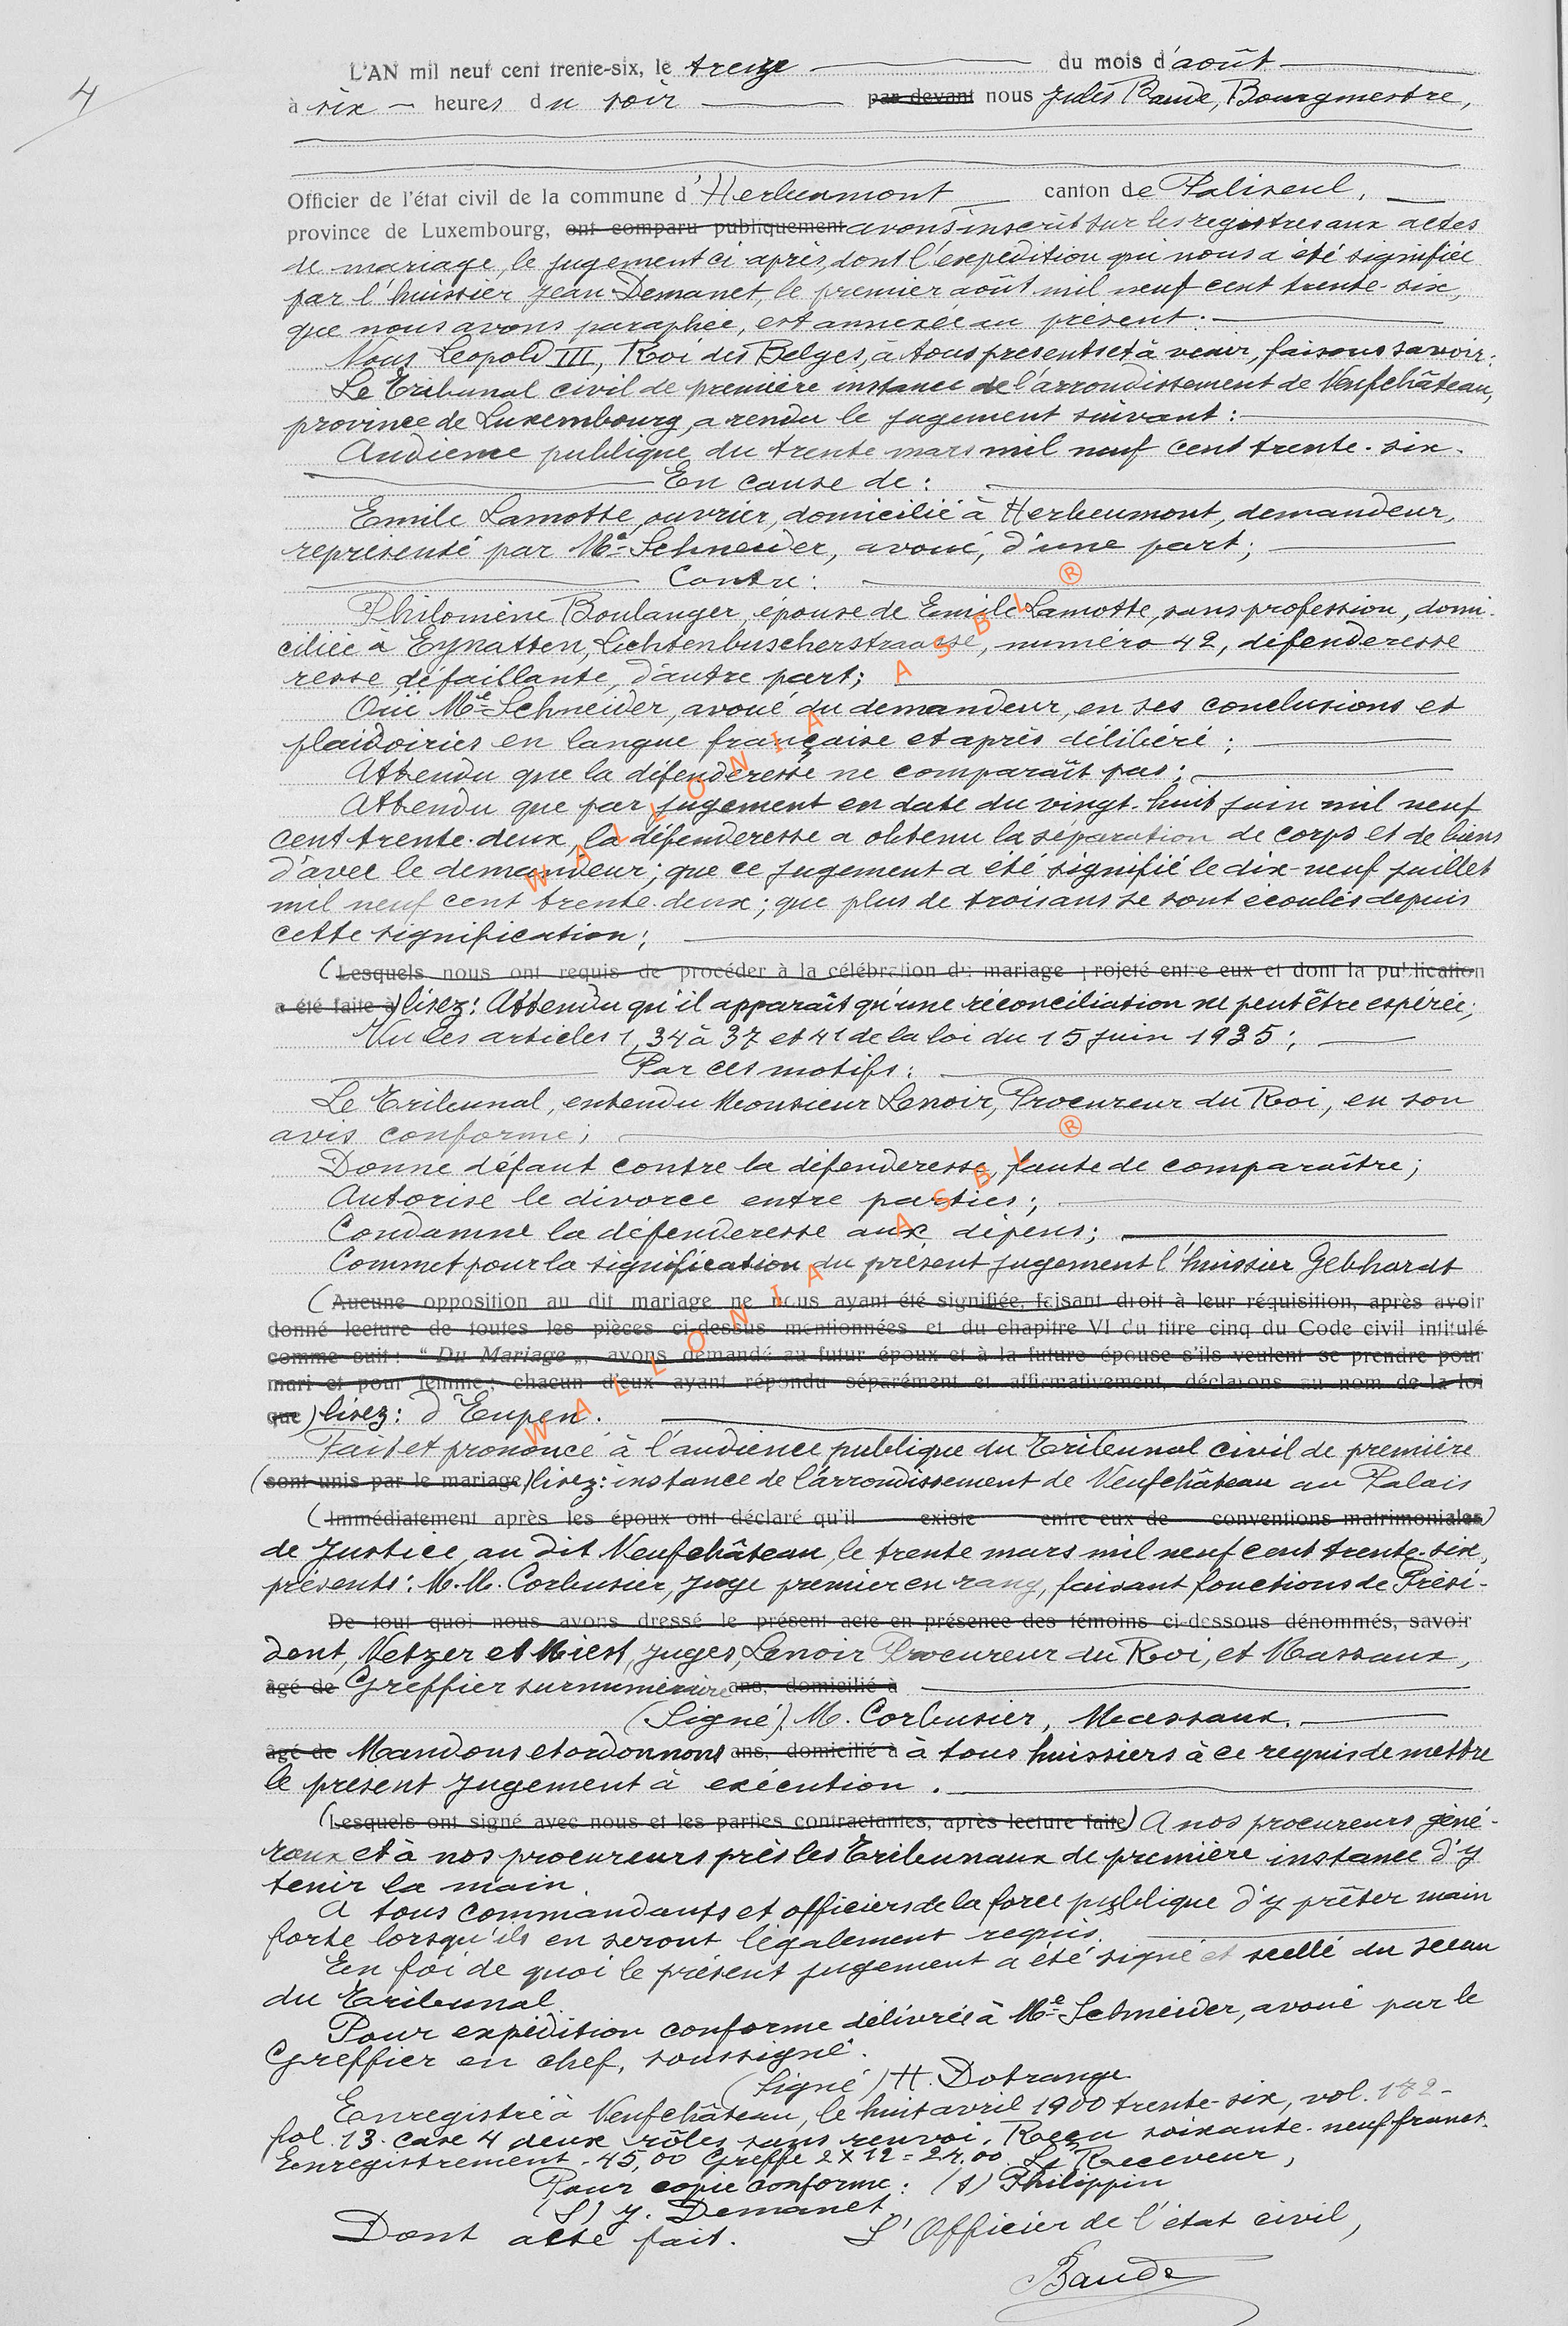 4
L'AN mil neuf cent trente-six, le treize du mois d'août
à six heures du soir par devant nous Jules Baude, Bourgmestre,
Officier de l'état civil de la commune d'Herbeumont canton de Paliseul,
province de Luxembourg, ont comparu publiquement avons inscrit sur les registres aux actes
de mariage, le jugement ci après, dont l'expédition qui nous a été signifiée
par l'huissier Jean Demanet, le premier août mil neuf cent trente-six,
que nous avons paraphée, est annexée au présent :
Nous Léopold III, Roi des Belges, à tous présents et à venir, faisons savoir :
Le Tribunal civil de première instance de l'arrondissement de Neufchâteau,
province de Luxembourg, a rendu le jugement suivant :
Audience publique du trente mars mil neuf cent trente-six.
En cause de :
Emile Lamotte, ouvrier, domicilié à Herbeumont, demandeur,
représenté par Me Schneider, avoué, d'une part ;
Contre :
Philomène Boulanger, épouse de Emile Lamotte, sans profession, domi-
ciliée à Eynatten, Lichtenbuscherstraasse, numéro 42, défenderesse
resse défaillante, d'autre part ;
Ouï Me Schneider, avoué du demandeur, en ses conclusions et
plaidoiries en langue française et après délibéré ;
Attendu que la défenderesse ne comparaît pas ;
Attendu que par jugement en date du vingt-huit juin mil neuf
cent trente-deux, la défenderesse a obtenu la séparation de corps et de biens
d'avec le demandeur ; que ce jugement a été signifié le dix-neuf juillet
mil neuf cent trente-deux ; que plus de trois ans se sont écoulés depuis
cette signification ;
(Lesquels nous ont requis de procéder à la célébration du mariage projeté entre eux et dont la publication
a été faite à) lisez : Attendu qu'il apparaît qu'une réconciliation ne peut être espérée ;
Vu les articles 1, 34 à 37 et 41 de la loi du 15 juin 1935 ;
Par ces motifs :
Le Tribunal, entendu Monsieur Lenoir, Procureur du Roi, en son
avis conforme ;
Donne défaut contre la défenderesse, faute de comparaître ;
Autorise le divorce entre parties ;
Condamne la défenderesse aux dépens ;
Commet pour la signification du présent jugement l'huissier Gebhardt
(Aucune opposition au dit mariage ne nous ayant été signifiée, faisant droit à leur réquisition, après avoir
donné lecture de toutes les pièces ci-dessus mentionnées et du chapitre VI du titre cinq du Code civil intitulé
comme suit : “ Du Mariage „, avons demandé au futur époux et à la future épouse s'ils veulent se prendre pour
mari et pour femme ; chacun d'eux ayant répondu séparément et affirmativement, déclarons au nom de la loi
que) lisez : d'Eupen.
Fait et prononcé à l'audience publique du Tribunal civil de première
(sont unis par le mariage) lisez : instance de l'arrondissement de Neufchâteau au Palais
(Immédiatement après les époux ont déclaré qu'il existe entre eux de conventions matrimoniales)
de Justice, au dit Neufchâteau, le trente mars mil neuf cent trente-six,
présents : M.M. Corbusier, juge premier en rang, faisant fonctions de Prési-
De tout quoi nous avons dressé le présent acte en présence des témoins ci-dessous dénommés, savoir
dent, Netzer et Miest, juges, Lenoir Procureur du Roi, et Massaux,
âgé de Greffier surnuméraire ans, domicilié à
(Signé) M. Corbusier, Massaux.
âgé de Mandons et ordonnons ans, domicilié à à tous huissiers à ce requis de mettre
le présent jugement à exécution.
(Lesquels ont signé avec nous et les parties contractantes, après lecture faite) A nos procureurs géné-
raux et à nos procureurs près les Tribunaux de première instance d'y
tenir la main.
A tous commandants et officiers de la force publique d'y prêter main
forte lorsqu'ils en seront légalement requis.
En foi de quoi le présent jugement a été signé et scellé du sceau
du Tribunal.
Pour expédition conforme délivrée à Me Schneider, avoué par le
Greffier en chef, soussigné.
(Signé) H. Dotrange.
Enregistré à Neufchâteau, le huit avril 1900 trente-six, vol. 172-
fol. 13. case 4 deux rôles sans renvoi. Reçu soixante-neuf francs.
Enregistrement - 45,00 Greffe 2 X 12 = 24.00 Le Receveur,
Pour copie conforme : (s) Philippin
(S) J. Demanet
Dont acte fait. L'Officier de l'état civil,
Baude
WALLONIA ASBL ®
WALLONIA ASBL ®